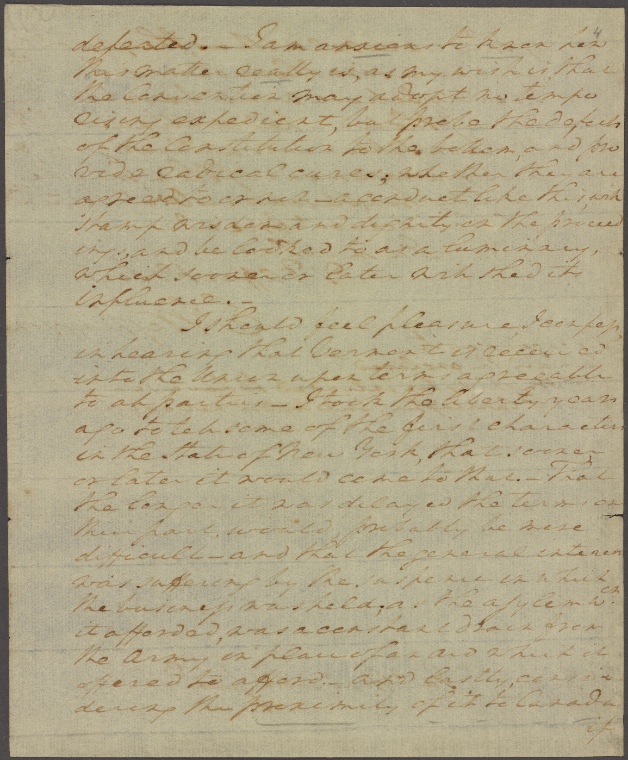 4
defected. — I am anxious to know how
this matter really is, as my wish is that
the Convention may adopt no tempo
rising expedient, but probe the defects
of the Constitution to the bottom, and pro
vide radical cures; whether they are
agreed to or not — a conduct like this, will
stamp wisdom and dignity on the proceed
ings, and be looked to as a luminary,
which sooner or later will shed its
influence. —
I should feel pleasure, I confess
in hearing that Vermont is received
into the Union upon terms agreeable
to all parties — I took the liberty years
ago to tell some of the first characters
in the State of New York, that sooner
or later it would come to that. — That
the longer it was delayed the terms on
their part, would, probably be more
difficult — and that the general interest
was suffering by the suspence in which
the business was held; as the asylum wch.
it afforded, was a constant drain from
the Army in place of an aid which it
offered to afford. — and lastly, consi
dering the proximity of it to Canada
if